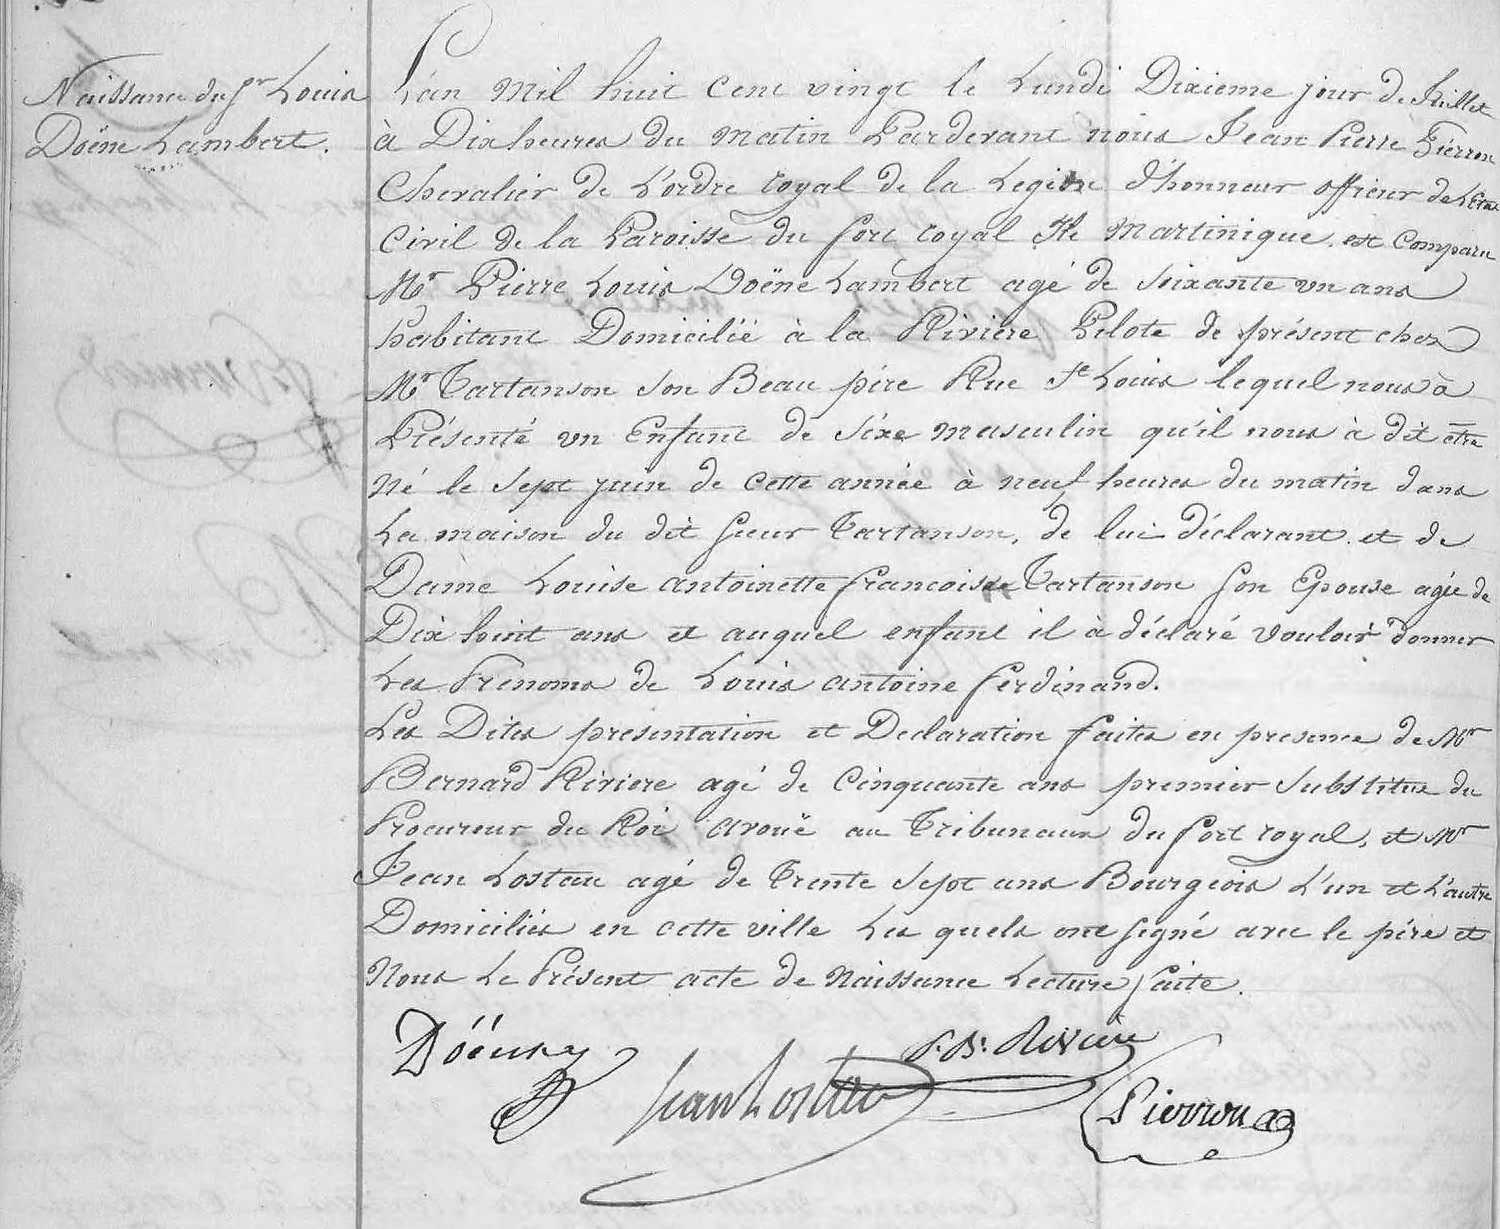 Naissance du Sr Louis
Doëne Lambert.
L'an Mil huit cent vingt le Lundi Dixieme jour de Juillet
à Dix heures du matin Pardevant nous Jean Pierre Pierron
Chevalier de L'ordre royal de la Legion d'honneur officier de L'Etat
Civil de la Paroisse du fort royal Ile Martinique. est comparu
Mr Pierre Louis Doëne Lambert agé de soixante un ans
habitant Domicilié à la Riviere Pilote de présent chez
Mr Tartanson son Beau père Rue St Louis lequel nous à
Présenté un Enfant de sèxe masculin qu'il nous à dit être
Né le sept juin de cette année à neuf heures du matin dans
La maison du dit sieur Tartanson, de lui déclarant et de
Dame Louise antoinette francoise Tartanson son Epouse agée de
Dix huit ans et auquel enfant il à déclaré vouloir donner
Les Prenoms de Louis antoine ferdinand.
Les Dites presentation et Declaration faites en presence de Mr
Bernard Riviere agé de Cinquante ans premier substitut du
Procureur du Roi avoué au Tribunaux du fort royal, et Mr
Jean Lostau agé de Trente sept ans Bourgeois L'un et L'autre
Domiciliés en cette ville Les quels ont signé avec le père et
Nous Le Présent acte de Naissance Lecture faite.
P. B. Riviere
Jean Lostau
Pierron